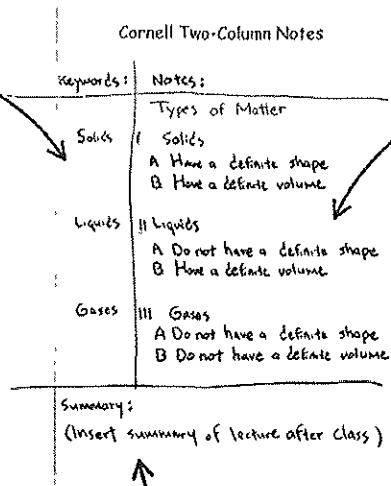 Cornell Two-Column Notes
Keywords: Notes:
Types of Matter
Solids I Solids
A Have a definite shape
B Have a definite volume
Liquids II Liquids
A Do not have a definite shape
B Have a definite volume
Gases III Gases
A Do not have a definite shape
B Do not have a definite volume
Summary:
(Insert summary of lecture after class)